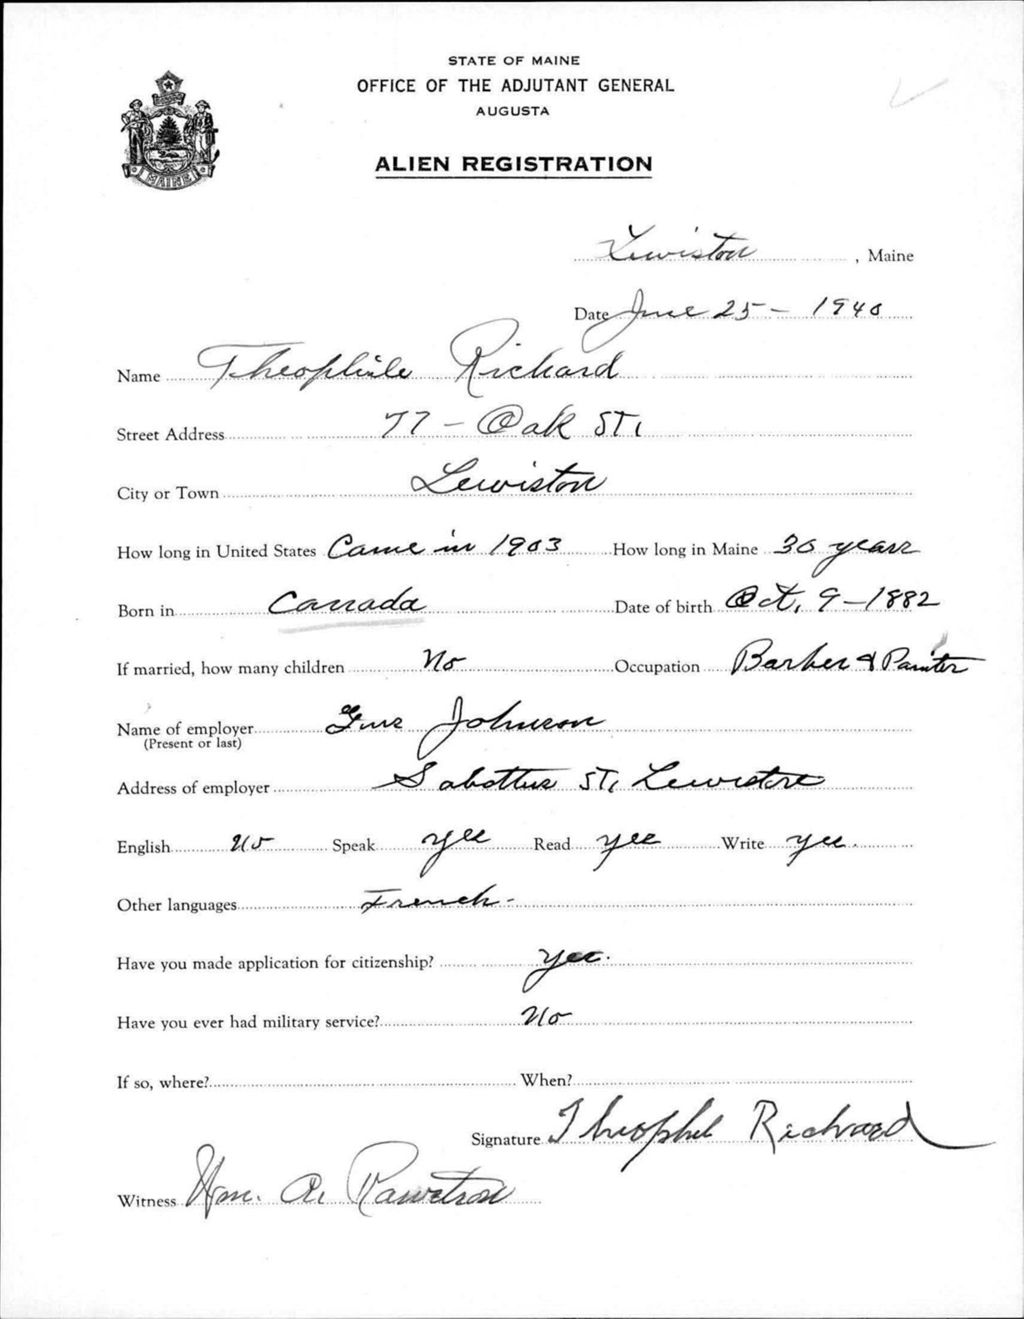 STATE OF MAINE
OFFICE OF THE ADJUTANT GENERAL
AUGUSTA
ALIEN REGISTRATION
MAINE
Lewiston, Maine
Date June 25 - 1940
Name Theophile Richard
Street Address 77 - Oak St.
City or Town Lewiston
How long in United States Came in 1903 How long in Maine 30 years
Born in Canada Date of birth Oct. 9 - 1882
If married, how many children No Occupation Barber & Painter
Name of employer Johnson
(Present or last)
Address of employer Sabattus St. Lewiston
English No Speak yes Read yes Write yes.
Other languages French -
Have you made application for citizenship? Yes.
Have you ever had military service? No
If so, where? When?
Signature Theophil Richard
Witness Wm. A.